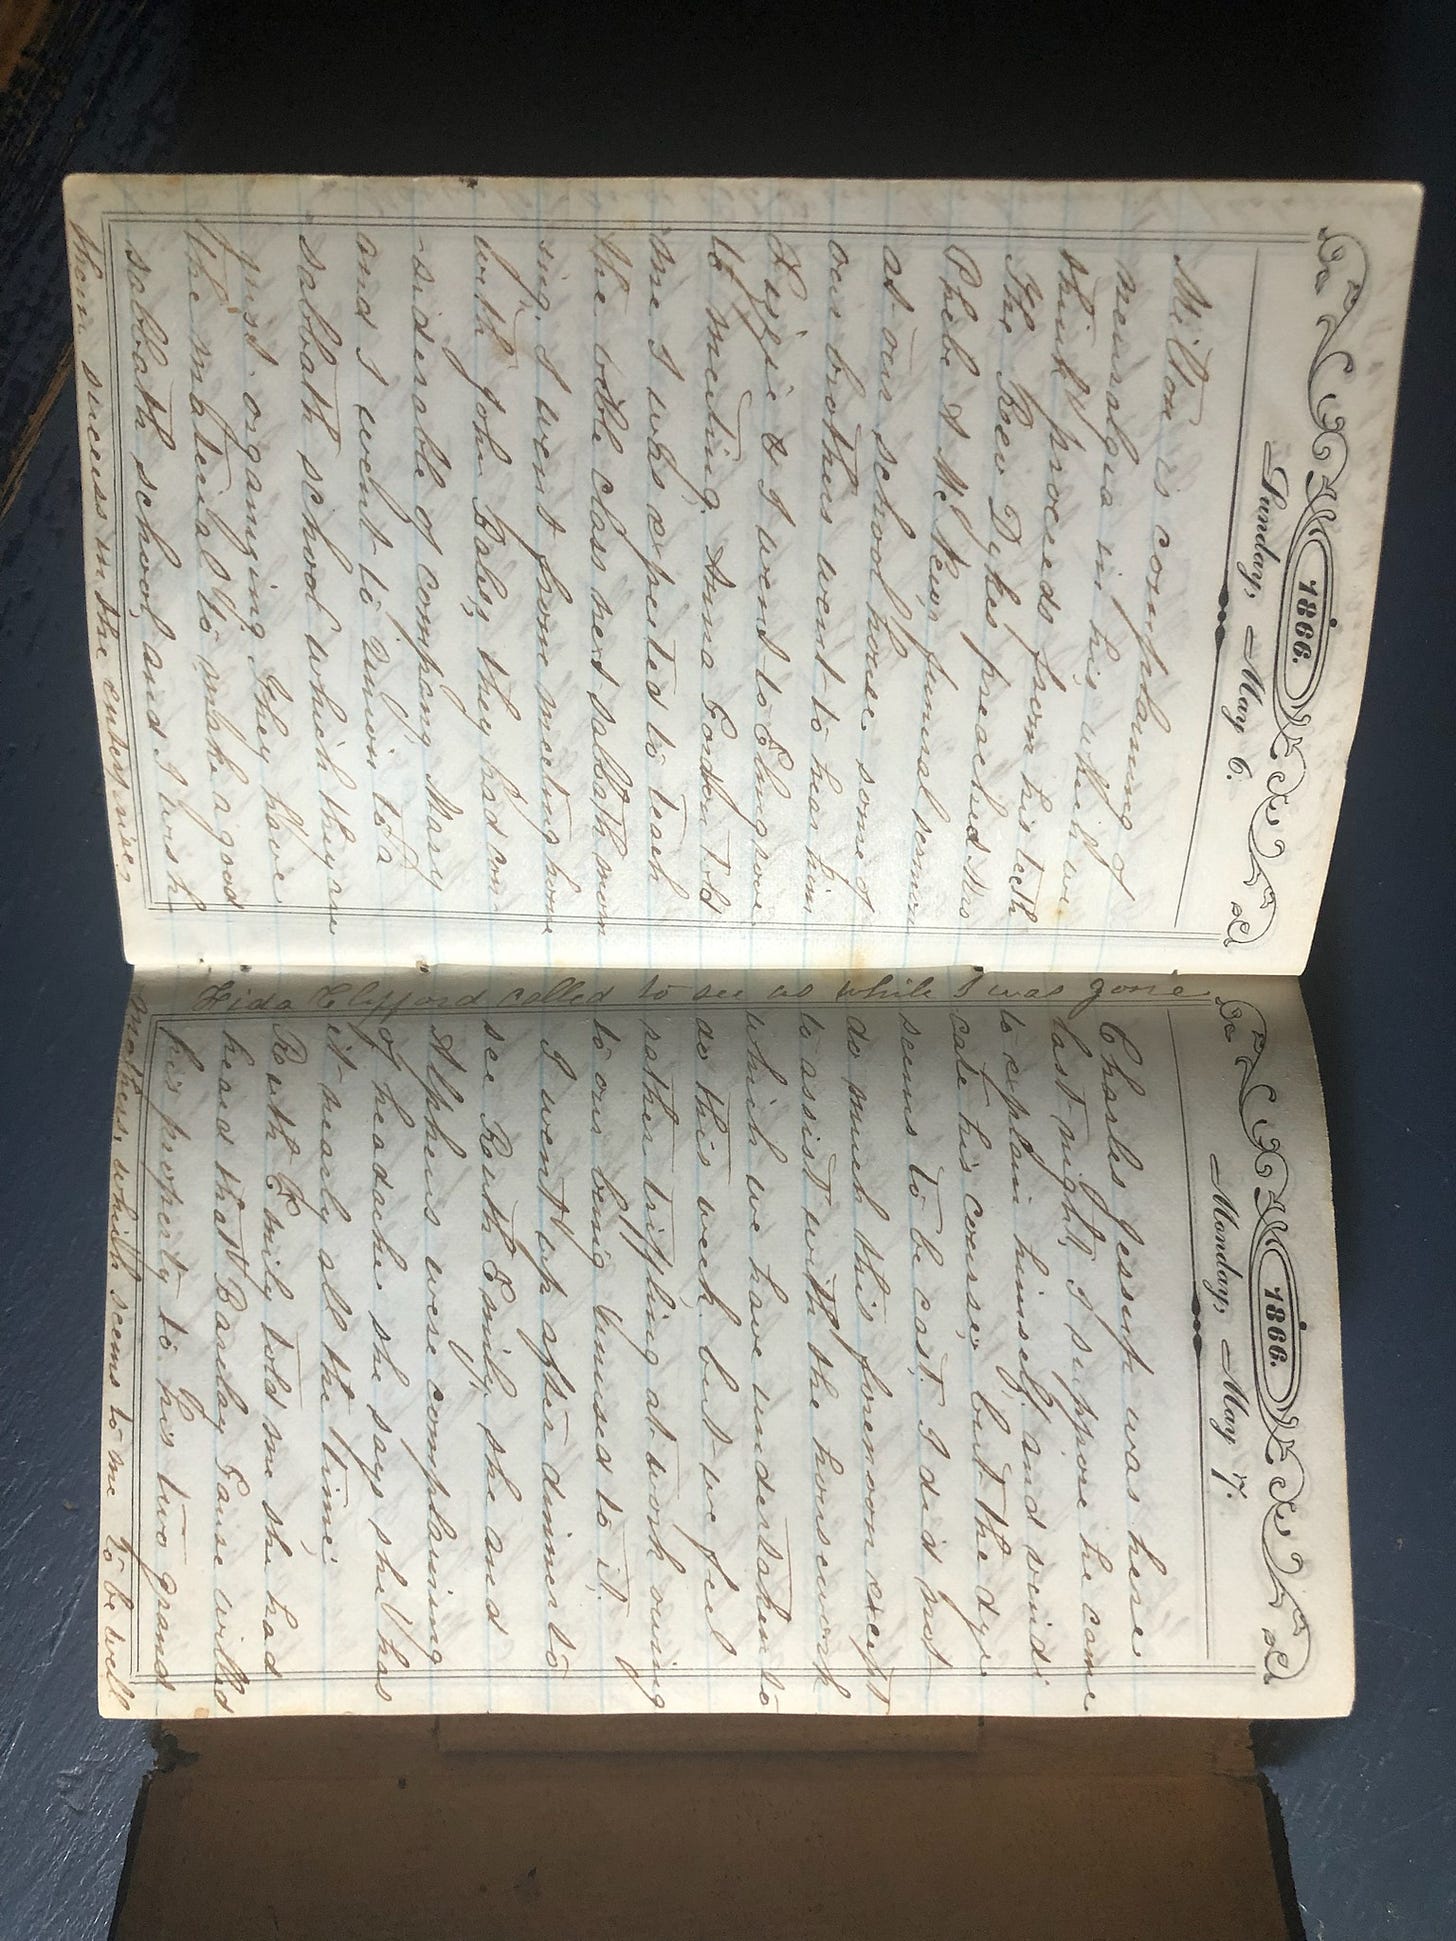 1866.
Sunday, May 6.
Milton is complaining of
neuralgia in his which we
think proceeds from his teeth
The Rev Dykes preached Mrs
Phebe A Mc funeral sermon
at our school house. some of
our brothers went to hear him
Lizzie & I went to Elmgrove
to meeting. Anna Gordon told
me I was expected to teach
the bible class next sabbath morn
ing. I went from meeting home
with John Baley, they had con
siderable of company, Mary
and I went to Union to a
sabbath school which they are
just organizing. They have
the material to make a good
sabbath school, and I wish
them success in the enterprise.
1866.
Monday, May 7.
Charles Jessup was here
last night, I suppose he came
to explain himself, and vindi
cate his course, but the dye
seems to be cast. I did not
do much this forenoon except
to assist with the housework
which we have undertaken to
do this week. but we feel
rather trifling at work owing
to our being unused to it.
I went up after dinner to
see Ruth Emily, she and
Alpheus were complaining
of headache she says she has
it nearly all the time,
Ruth Emily told me she had
heard that Barclay Gause willed
his property to his two grand
mothers, which seems to me to be well
Lida Clifford called to see us while I was gone